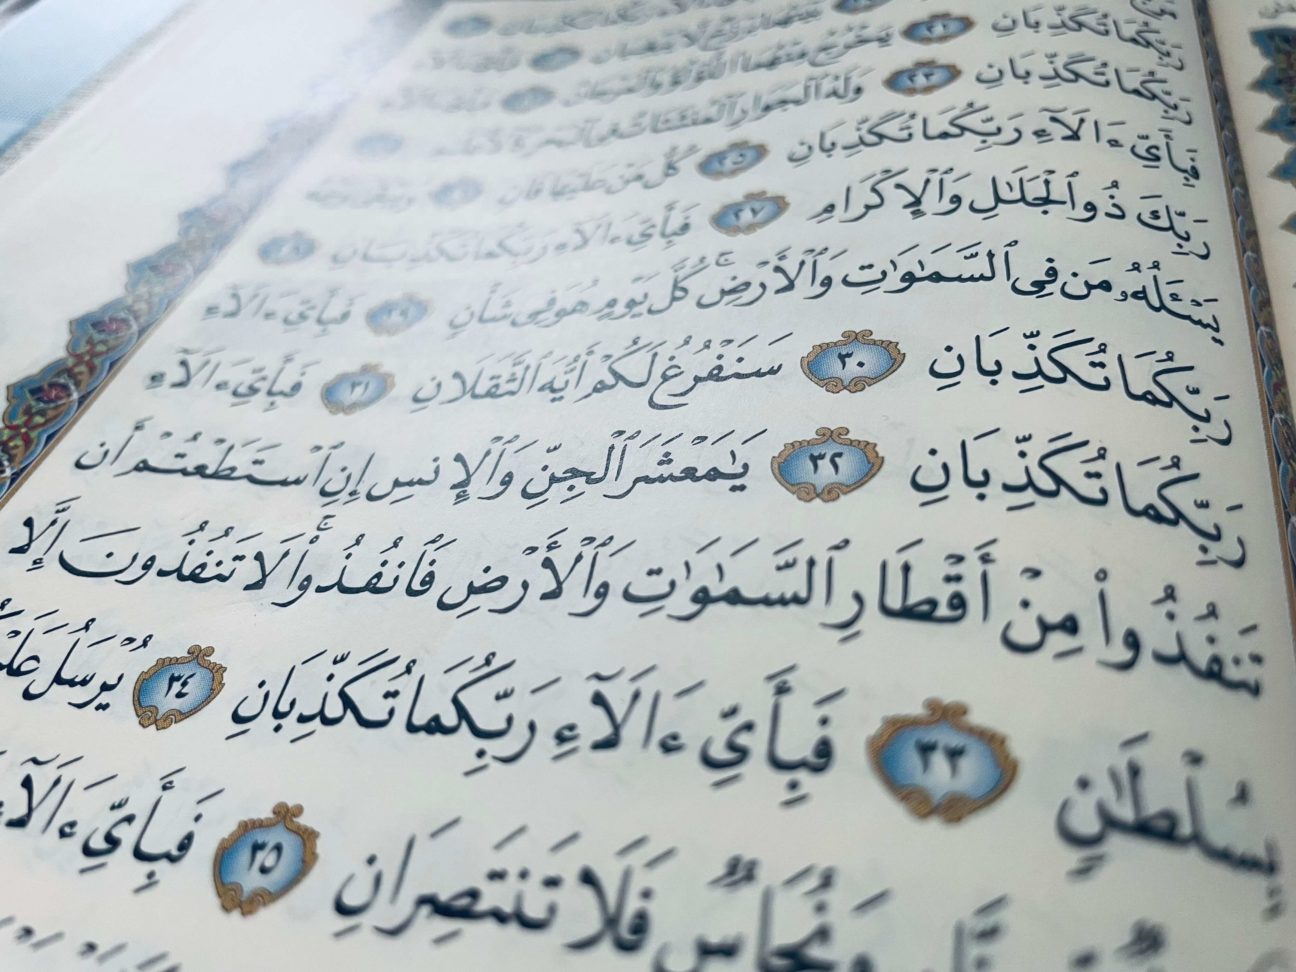 رَبِّكُمَا تُكَذِّبَانِ ٢٢ يَخْرُجُ مِنْهُمَا ٱللُّؤْلُؤُ وَٱلْمَرْجَانُ
رَبِّكُمَا تُكَذِّبَانِ ٢٣ وَلَهُ ٱلْجَوَارِ ٱلْمُنشَـَٔاتُ فِى ٱلْبَحْرِ
فَبِأَىِّ ءَالَآءِ رَبِّكُمَا تُكَذِّبَانِ ٢٥ كُلُّ مَنْ عَلَيْهَا فَانٍ
رَبِّكَ ذُو ٱلْجَلَـٰلِ وَٱلْإِكْرَامِ ٢٧ فَبِأَىِّ ءَالَآءِ رَبِّكُمَا تُكَذِّبَانِ ٢٨
يَسْـَٔلُهُۥ مَن فِى ٱلسَّمَـٰوَٰتِ وَٱلْأَرْضِ ۚ كُلَّ يَوْمٍ هُوَ فِى شَأْنٍ ٢٩ فَبِأَىِّ ءَالَآءِ
رَبِّكُمَا تُكَذِّبَانِ ٣٠ سَنَفْرُغُ لَكُمْ أَيُّهَ ٱلثَّقَلَانِ ٣١ فَبِأَىِّ ءَالَآءِ
رَبِّكُمَا تُكَذِّبَانِ ٣٢ يَـٰمَعْشَرَ ٱلْجِنِّ وَٱلْإِنسِ إِنِ ٱسْتَطَعْتُمْ أَن
تَنفُذُوا۟ مِنْ أَقْطَارِ ٱلسَّمَـٰوَٰتِ وَٱلْأَرْضِ فَٱنفُذُوا۟ ۚ لَا تَنفُذُونَ إِلَّا
بِسُلْطَـٰنٍ ٣٣ فَبِأَىِّ ءَالَآءِ رَبِّكُمَا تُكَذِّبَانِ ٣٤ يُرْسَلُ
وَنُحَاسٌ فَلَا تَنتَصِرَانِ ٣٥ فَبِأَىِّ ءَالَآءِ